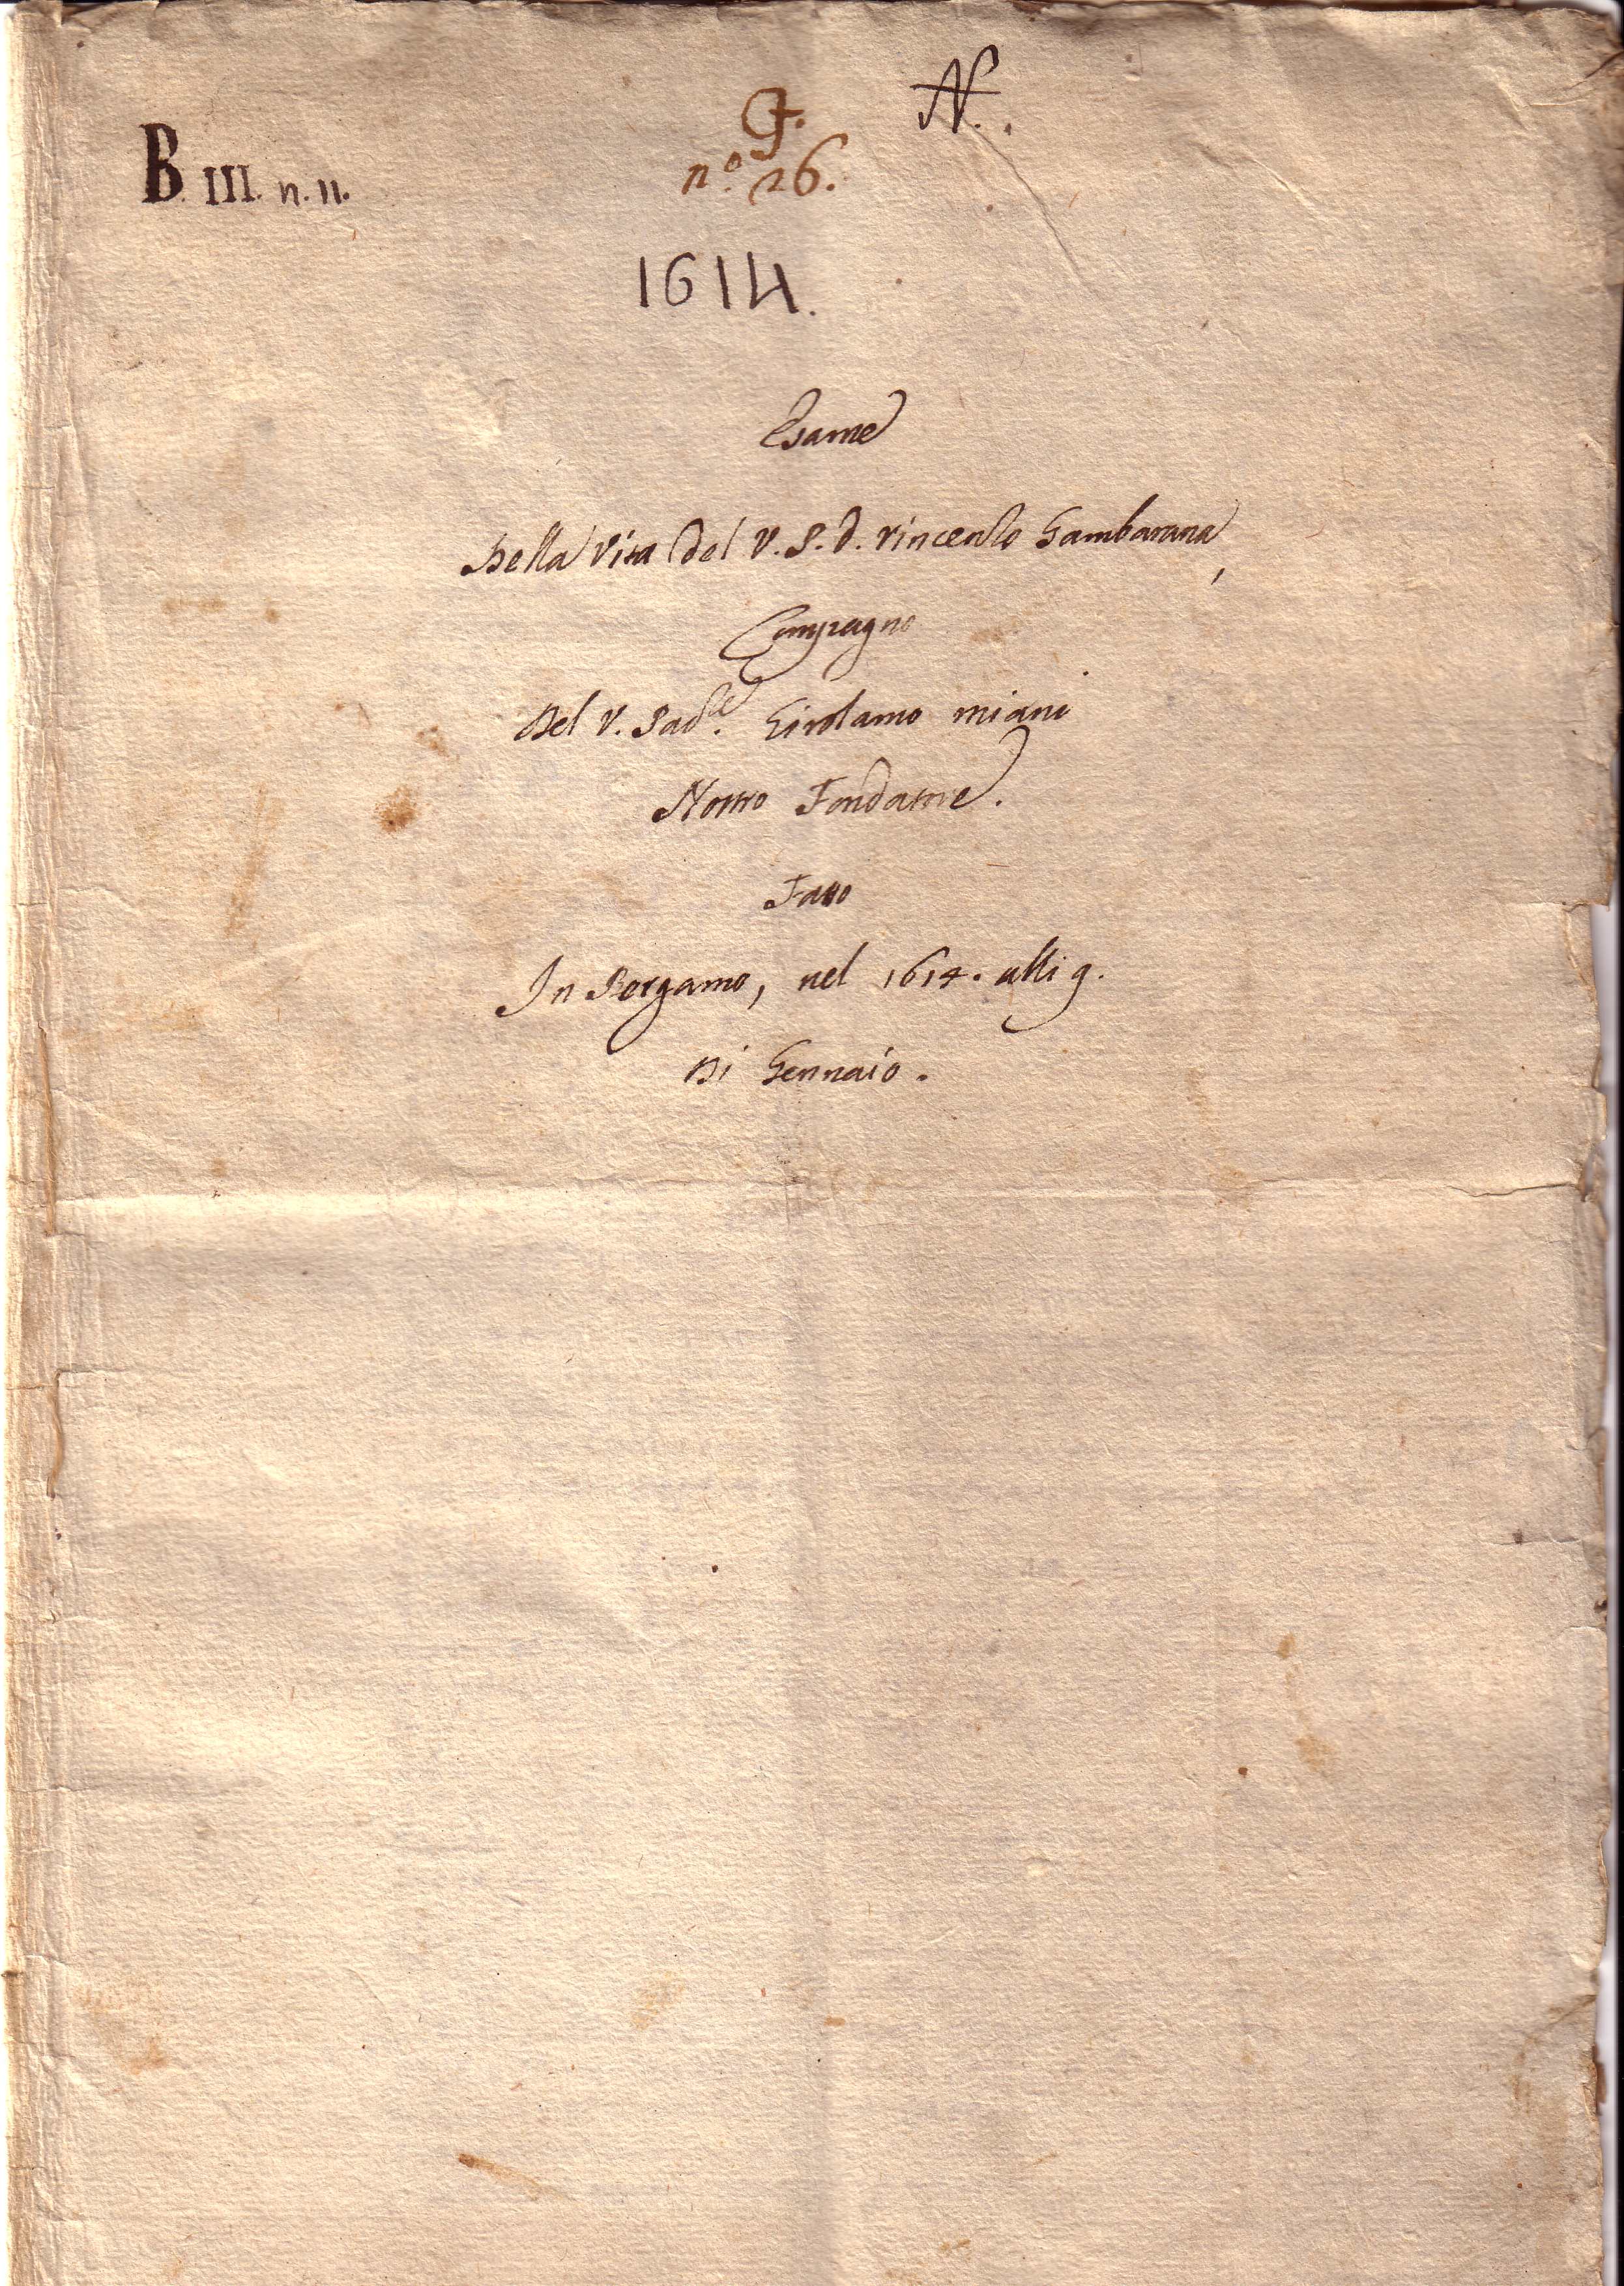 N.
G.
B. III. n. 11.
nº. 26.
1614.
Esame
Della Vita del V. P. D. Vincenzo Gambarana,
Compagno
Del V. Padre. Girolamo Miani
Nostro Fondatore.
Fatto
In Bergamo, nel 1614. alli 9.
Di Gennaio.